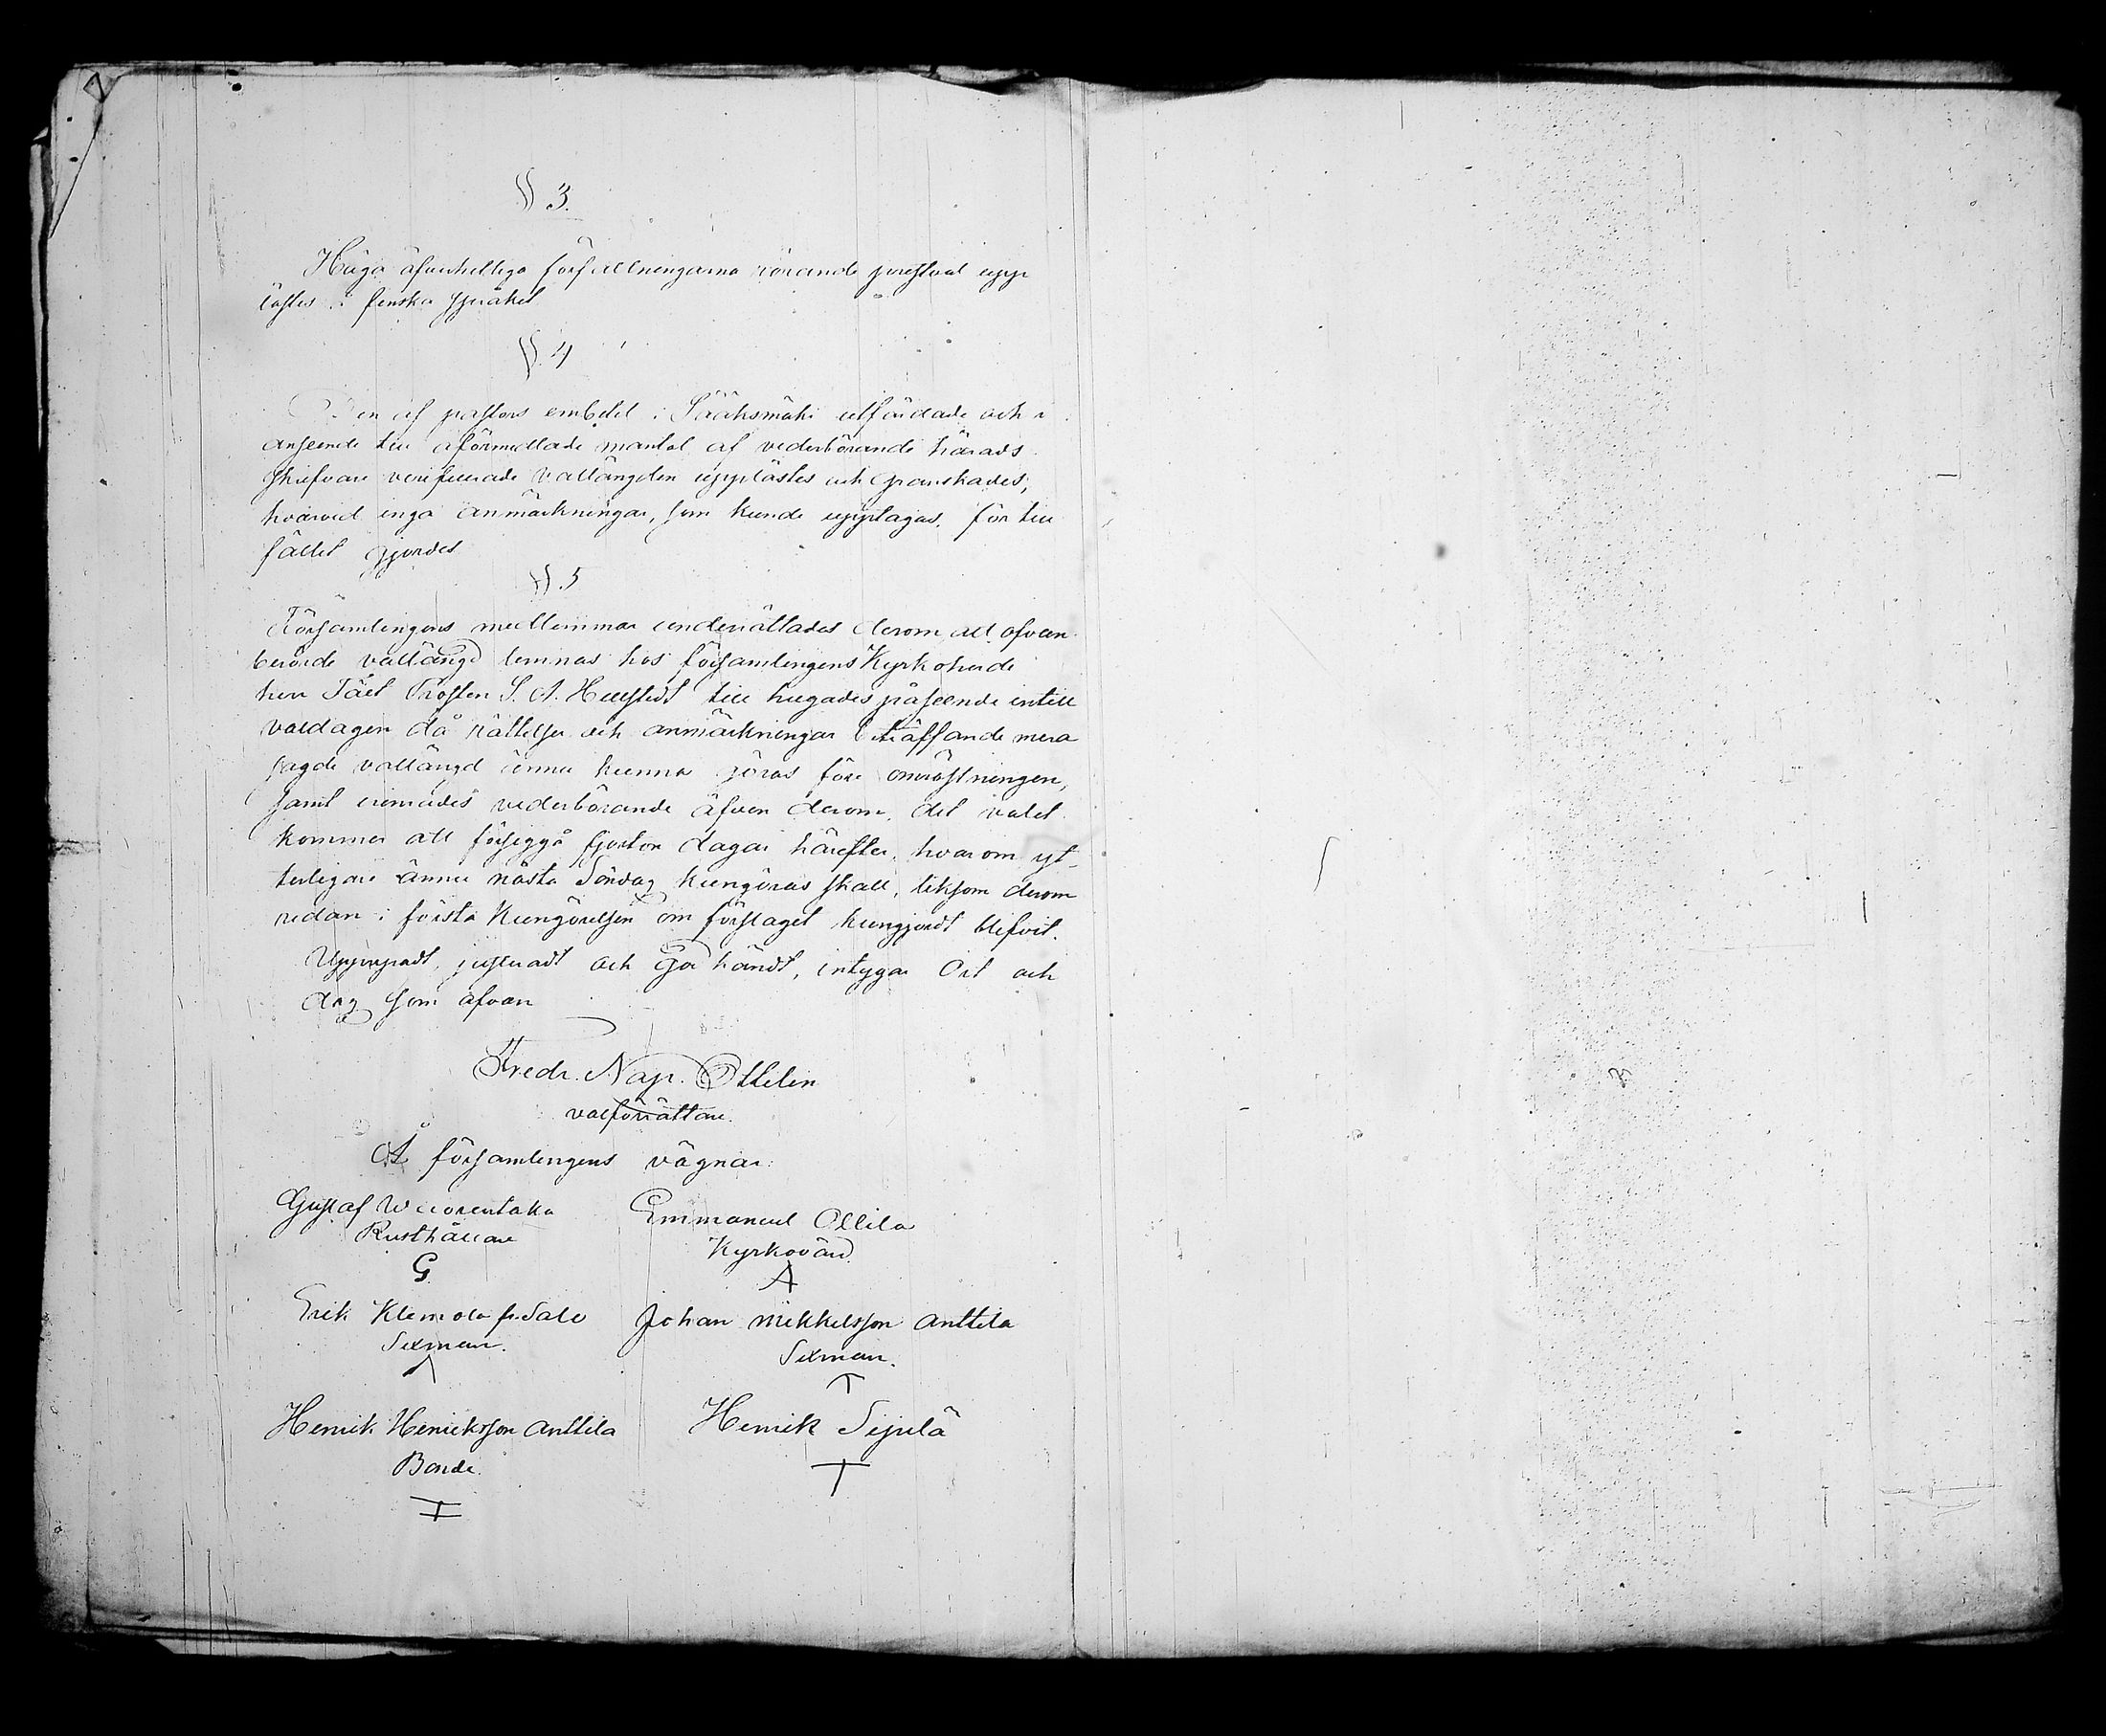 § 3.
Höga öfverhetliga författningarna rörande prestval upp
lästes i finska språket
§. 4
Den af pastors embetet i Sääksmäki utfärdade och i
anseende till oförmedlade mantal af vederbörande härads
skrifvare verifierade vallängden upplästes och granskades,
hvarvid inga anmärkningar, som kunde upptagas, för till
fället gjordes
§. 5
Församlingens medlemmar underrättades derom att ofvan
berörde vallängd lemnas hos församlingens Kyrkoherde
herr Prosten S. A. Hellstedt till hugades påseende intill
valdagen då rättelser och anmärkningar beträffande mera
sagde vallängd ännu kunna göras före omröstningen,
samt erinrades vederbörande äfven derom, det valet
kommer att försiggå fjorton dagar härefter, hvarom yt-
terligare ännu nästa Söndag kungöras skall, liksom derom
redan i första Kungörelsen om förslaget kungjordt blifvit.
Uppvisadt, justeradt och händt, intygar Ort och
dag som ofvan
Fredr. Nap. Ottelin
valförrättare.
Å församlingens vägnar:
Gustaf Wuorentaka
Rusthållare
G
Emmanuel Ollila
Kyrkovärd.
A
Erik Klemola fr. Salo
Sexman.
Johan Mikkelsson Anttila
Sexman.
Henrik Henricksson Anttila
Bonde.
Henrik Sipilä